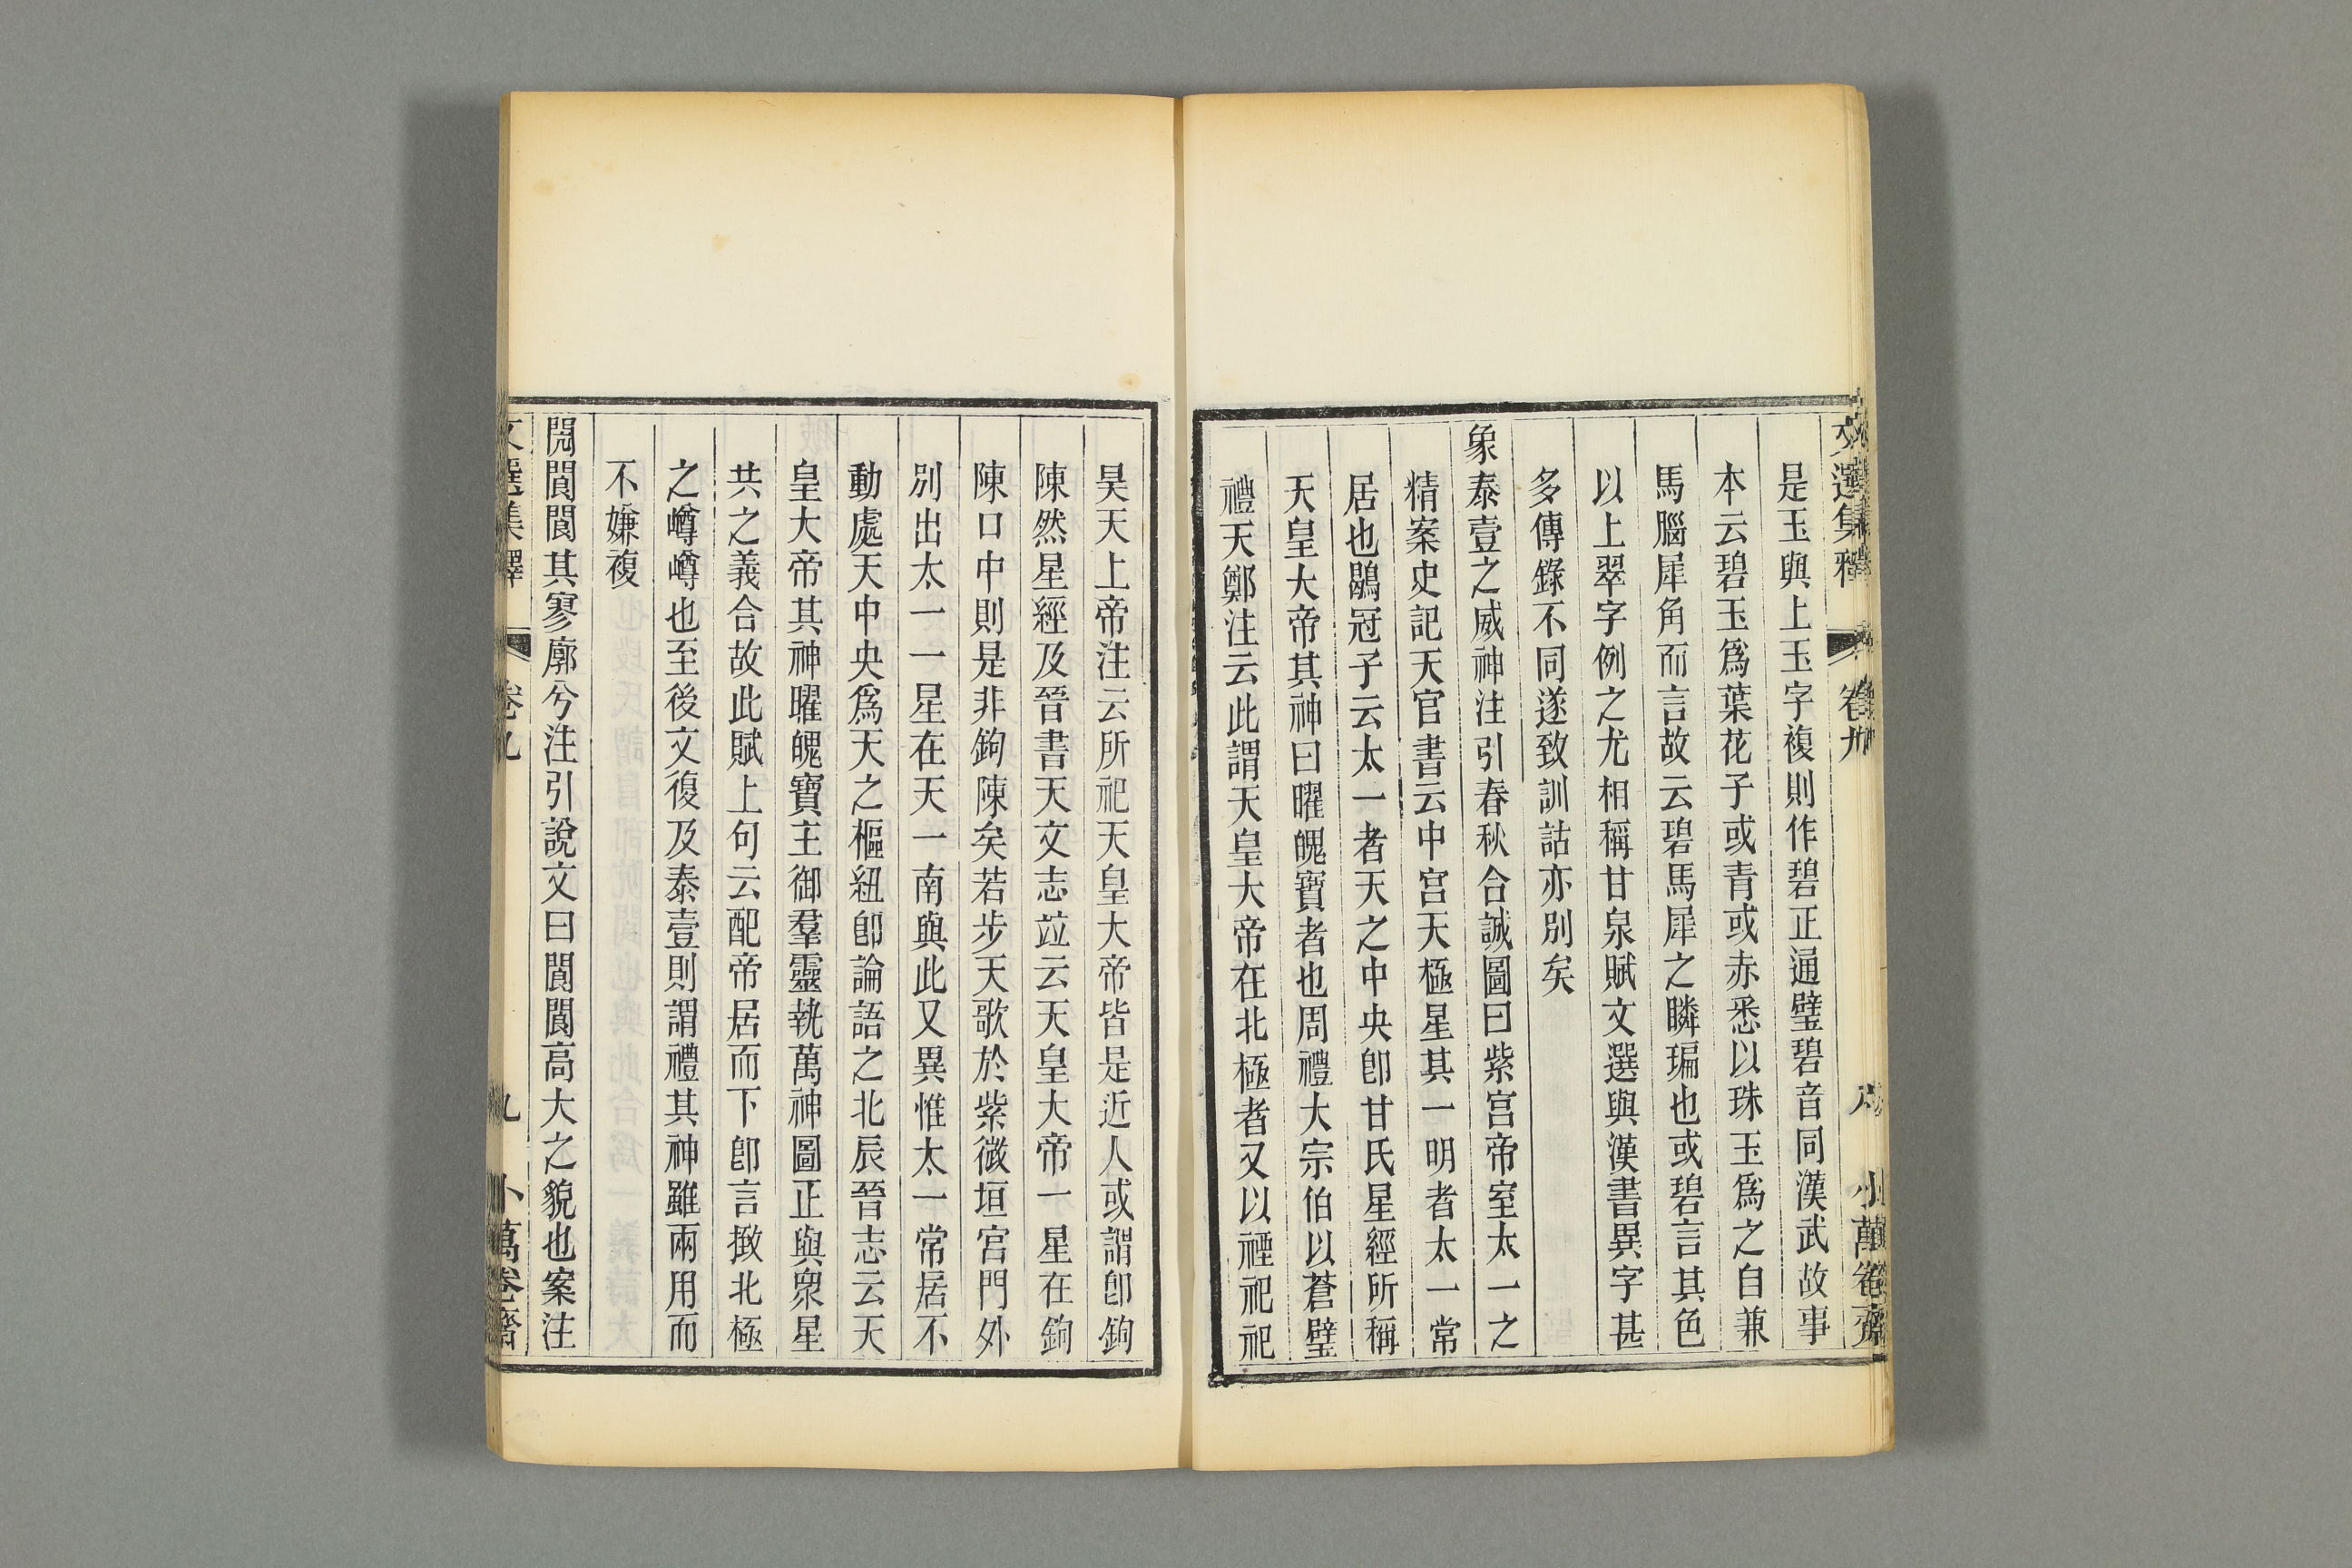 是玉與上玉字複則作碧正通璧碧音同漢武故事
本云碧玉爲葉花子或青或赤悉以珠玉爲之自兼
馬腦犀角而言故云碧馬犀之瞵㻞也或碧言其色
以上翠字例之尤相稱甘泉賦文選與漢書異字甚
多傳錄不同遂致訓詁亦別矣
象泰壹之威神注引春秋合誠圖曰紫宮帝室太一之
精案史記天官書云中宮天極星其一明者太一常
居也鶡冠子云太一者天之中央卽甘氏星經所稱
天皇大帝其神曰曜魄寶者也周禮大宗伯以蒼璧
禮天鄭注云此謂天皇大帝在北極者又以禋祀祀
昊天上帝注云所祀天皇大帝皆是近人或謂卽鉤
陳然星經及晉書天文志竝云天皇大帝一星在鉤
陳口中則是非鉤陳矣若步天歌於紫微垣宮門外
別出太一一星在天一南與此又異惟太一常居不
動處天中央爲天之樞紐卽論語之北辰晉志云天
皇大帝其神曜魄寶主御羣靈執萬神圖正與衆星
共之義合故此賦上句云配帝居而下卽言撠北極
之嶟嶟也至後文復及泰壹則謂禮其神雖兩用而
不嫌複
閌閬閬其寥廓兮注引說文曰閬閬高大之貌也案注
文選集釋
卷九
九
小萬卷齋